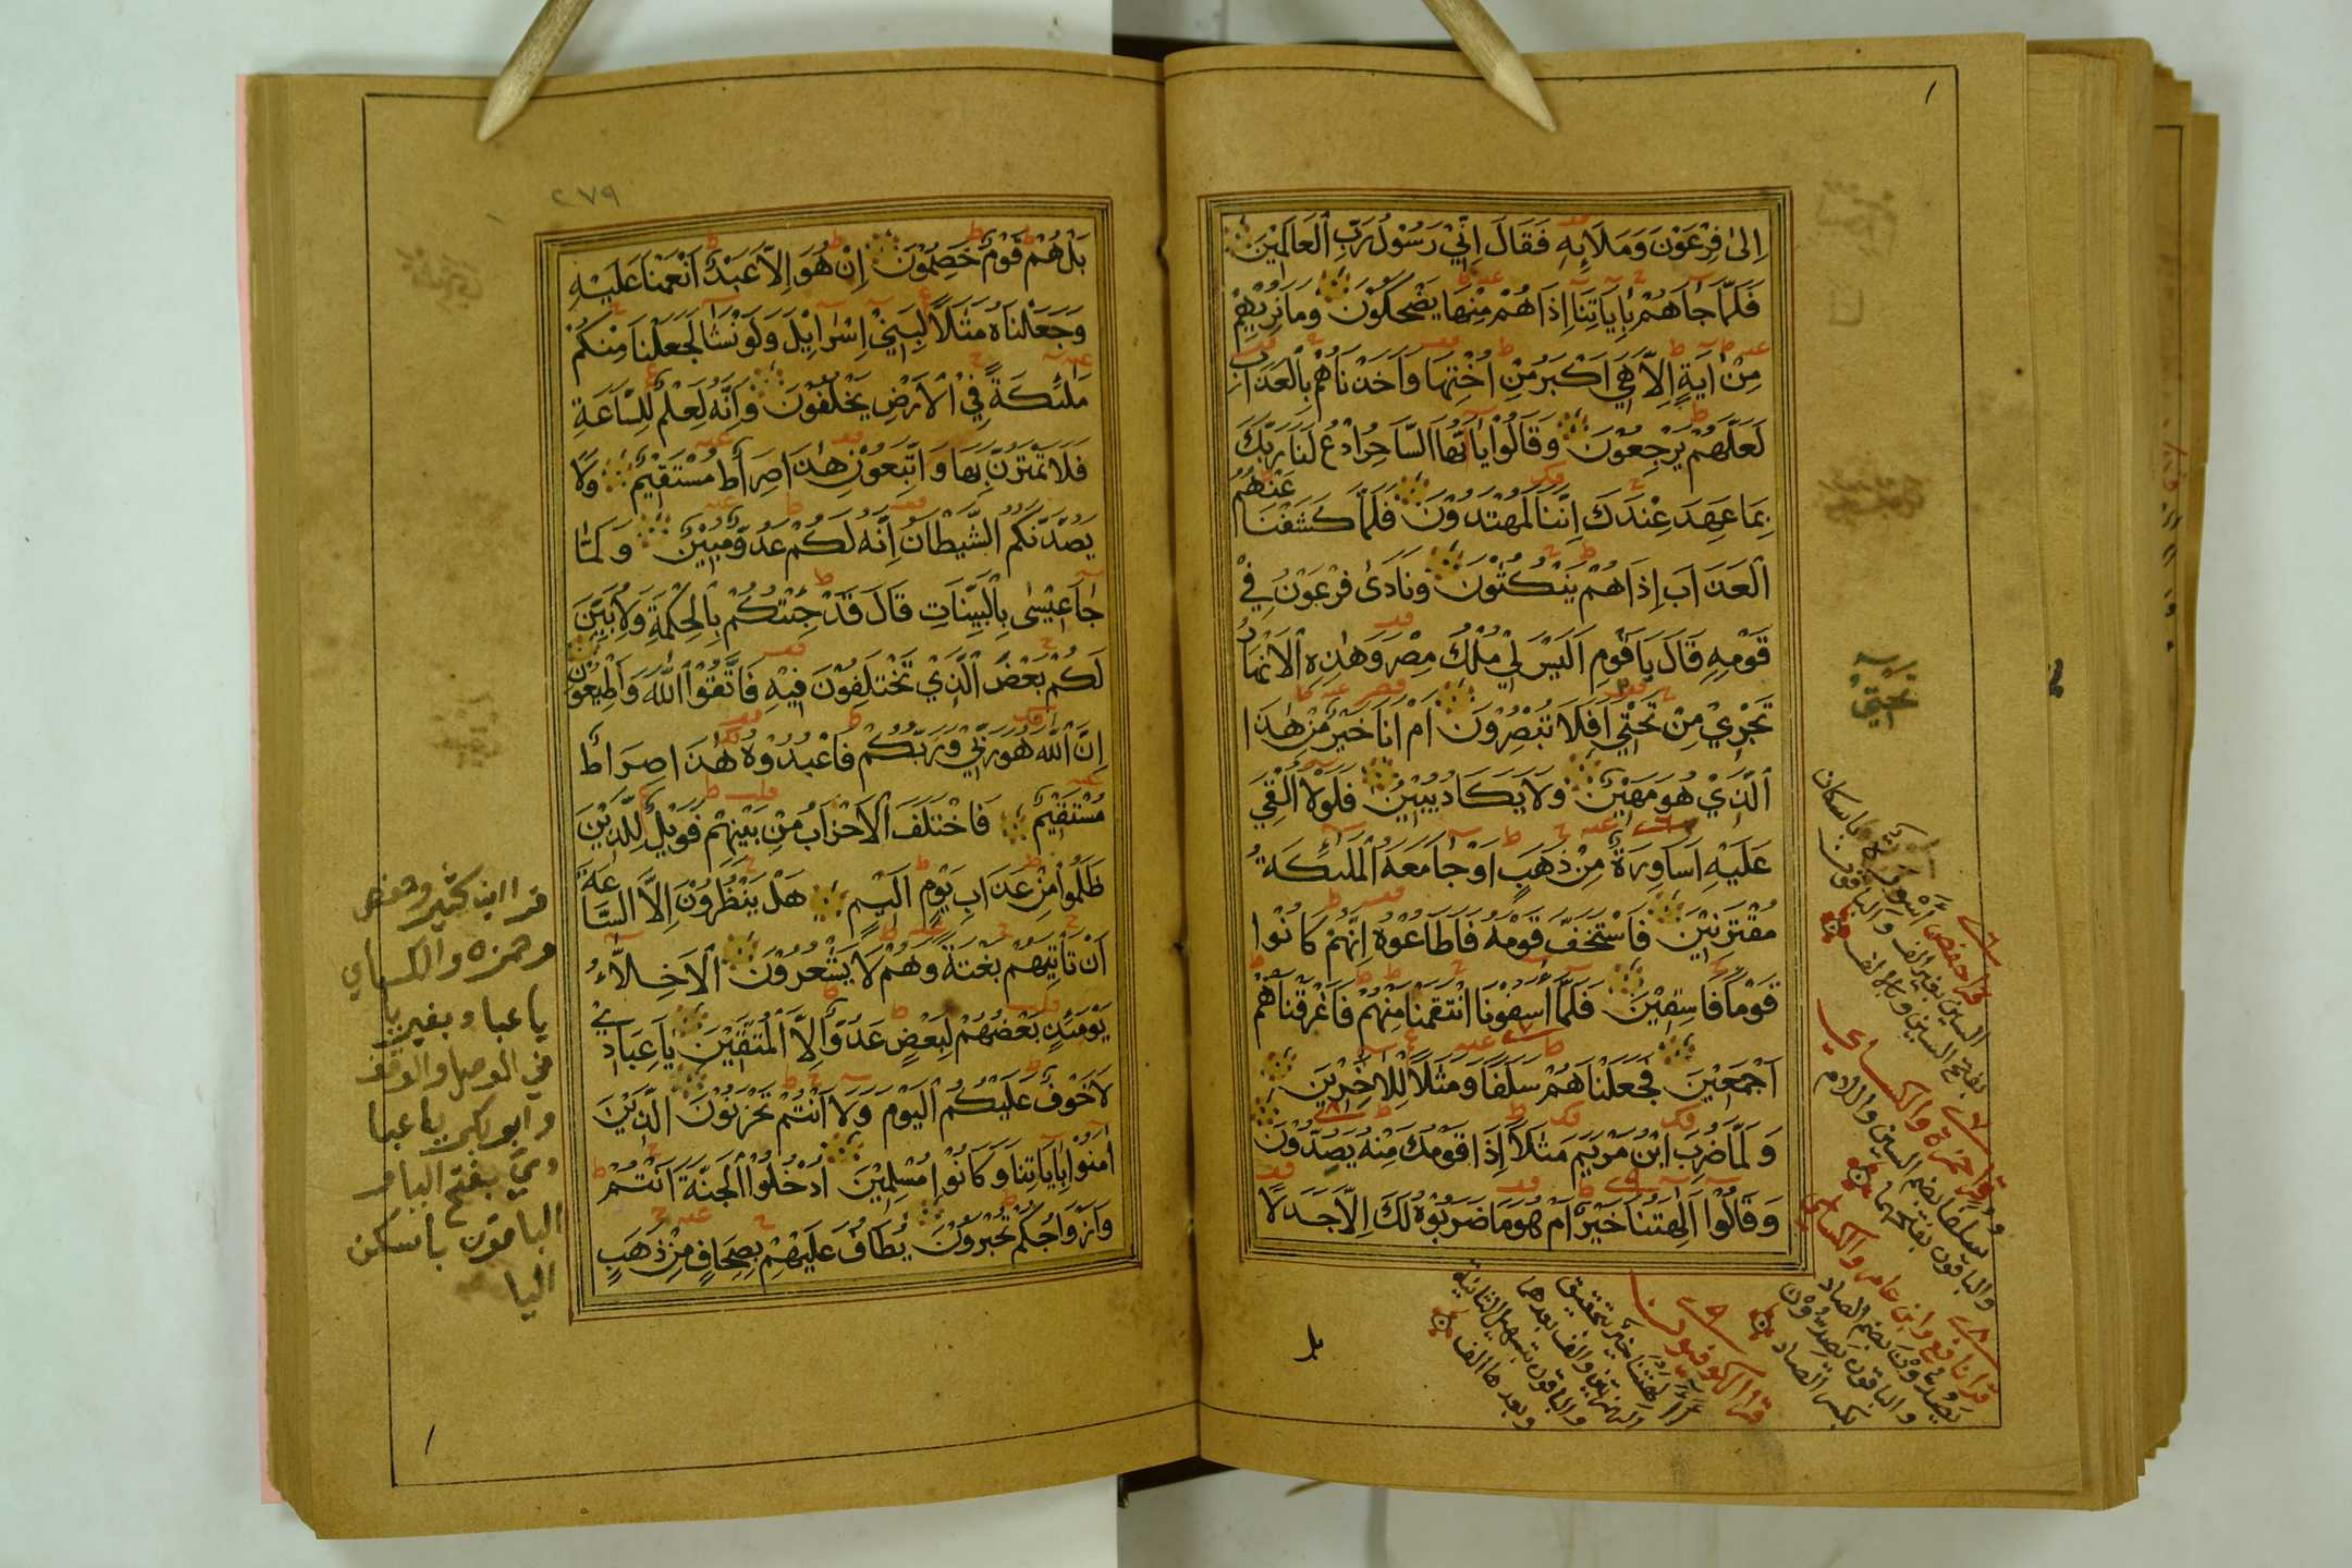 اِلىٰ فِرْعَوْنَ وَمَلَائِهٖ فَقَالَ اِنِّيْ رَسُوْلُ رَبِّ الْعَالَمِيْنَ
فَلَمَّا جَاهُمْ بِاٰيَاتِنَا اِذَا هُمْ مِنْهَا يَضْحَكُوْنَ وَمَا نُرِيْهِمْ
مِنْ اٰيَةٍ اِلَّا هِيَ اَكْبَرُ مِنْ اُخْتِهَا وَاَخَذْنَاهُمْ بِالْعَذَابِ
لَعَلَّهُمْ يَرْجِعُوْنَ وَقَالُوْا يَا اَيُّهَا السَّاحِرُ ادْعُ لَنَا رَبَّكَ
بِمَا عَهِدَ عِنْدَكَ اِنَّنَا لَمُهْتَدُوْنَ فَلَمَّا كَشَفْنَا عَنْهُمُ
الْعَذَابَ اِذَا هُمْ يَنْكُثُوْنَ وَنَادٰى فِرْعَوْنُ فِيْ
قَوْمِهٖ قَالَ يَا قَوْمِ اَلَيْسَ لِيْ مُلْكُ مِصْرَ وَهٰذِهِ الْاَنْهَارُ
تَجْرِيْ مِنْ تَحْتِيْ اَفَلَا تُبْصِرُوْنَ اَمْ اَنَا خَيْرٌ مِنْ هٰذَا
الَّذِيْ هُوَ مَهِيْنٌ وَلَا يَكَادُ يُبِيْنُ فَلَوْلَا اُلْقِيَ
عَلَيْهِ اَسَاوِرَةٌ مِنْ ذَهَبٍ اَوْ جَا مَعَهُ الْمَلٰئِكَةُ
مُقْتَرِنِيْنَ فَاسْتَخَفَّ قَوْمَهُ فَاَطَاعُوْهُ اِنَّهُمْ كَانُوْا
قَوْمًا فَاسِقِيْنَ فَلَمَّا اٰسَفُوْنَا انْتَقَمْنَا مِنْهُمْ فَاَغْرَقْنَاهُمْ
اَجْمَعِيْنَ فَجَعَلْنَاهُمْ سَلَفًا وَمَثَلًا لِلْاٰخِرِيْنَ
وَلَمَّا ضُرِبَ ابْنُ مَرْيَمَ مَثَلًا اِذَا قَوْمُكَ مِنْهُ يَصِدُّوْنَ
وَقَالُوْا اَاٰلِهَتُنَا خَيْرٌ اَمْ هُوَ مَا ضَرَبُوْهُ لَكَ اِلَّا جَدَلًا
قرا حفص اَسْوِرَة باسكان
السين بغير الف والباقون
بفتح السين وبالالف
قرا حمزة والكسائي
سلفا بضم السين واللام
والباقون بفتحهما
قرا نافع وابن عامر والكسائي
يصُدون بضم الصاد
والباقون يصِدون
بكسر الصاد
قرا الكوفيون
ءاالهتنا خير بتحقيق
الهمزتين والف بعدهما
والباقون بتسهيل الثانية
وبعدها الف
بل
٢٧٩
بَلْ هُمْ قَوْمٌ خَصِمُوْنَ اِنْ هُوَ اِلَّا عَبْدٌ اَنْعَمْنَا عَلَيْهِ
وَجَعَلْنَاهُ مَثَلًا لِبَنِيْ اِسْرَائِيْلَ وَلَوْ نَشَا لَجَعَلْنَا مِنْكُمْ
مَلٰئِكَةً فِيْ الْاَرْضِ يَخْلُفُوْنَ وَاِنَّهُ لَعِلْمٌ لِلسَّاعَةِ
فَلَا تَمْتَرُنَّ بِهَا وَاتَّبِعُوْنِ هٰذَا صِرَاطٌ مُسْتَقِيْمٌ وَلَا
يَصُدَّنَّكُمُ الشَّيْطَانُ اِنَّهُ لَكُمْ عَدُوٌّ مُبِيْنٌ وَلَمَّا
جَا عِيْسٰى بِالْبَيِّنَاتِ قَالَ قَدْ جِئْتُكُمْ بِالْحِكْمَةِ وَلِاُبَيِّنَ
لَكُمْ بَعْضَ الَّذِيْ تَخْتَلِفُوْنَ فِيْهِ فَاتَّقُوْا اللّٰهَ وَاَطِيْعُوْنِ
اِنَّ اللّٰهَ هُوَ رَبِّيْ وَرَبُّكُمْ فَاعْبُدُوْهُ هٰذَا صِرَاطٌ
مُسْتَقِيْمٌ فَاخْتَلَفَ الْاَحْزَابُ مِنْ بَيْنِهِمْ فَوَيْلٌ لِلَّذِيْنَ
ظَلَمُوْا مِنْ عَذَابِ يَوْمٍ اَلِيْمٍ هَلْ يَنْظُرُوْنَ اِلَّا السَّاعَةَ
اَنْ تَاْتِيَهُمْ بَغْتَةً وَهُمْ لَا يَشْعُرُوْنَ اَلْاَخِلَّاءُ
يَوْمَئِذٍ بَعْضُهُمْ لِبَعْضٍ عَدُوٌّ اِلَّا الْمُتَّقِيْنَ يَا عِبَادِيْ
لَا خَوْفٌ عَلَيْكُمُ الْيَوْمَ وَلَا اَنْتُمْ تَحْزَنُوْنَ الَّذِيْنَ
اٰمَنُوْا بِاٰيَاتِنَا وَكَانُوْا مُسْلِمِيْنَ اُدْخُلُوْا الْجَنَّةَ اَنْتُمْ
وَاَزْوَاجُكُمْ تُحْبَرُوْنَ يُطَافُ عَلَيْهِمْ بِصِحَافٍ مِنْ ذَهَبٍ
قرا ابن كثير وحفص
وحمزه والكساي
يا عباد بغير يا
في الوصل والوقف
وابو بكر يا عبا
دي بفتح اليا و
الباقون باسكن
اليا